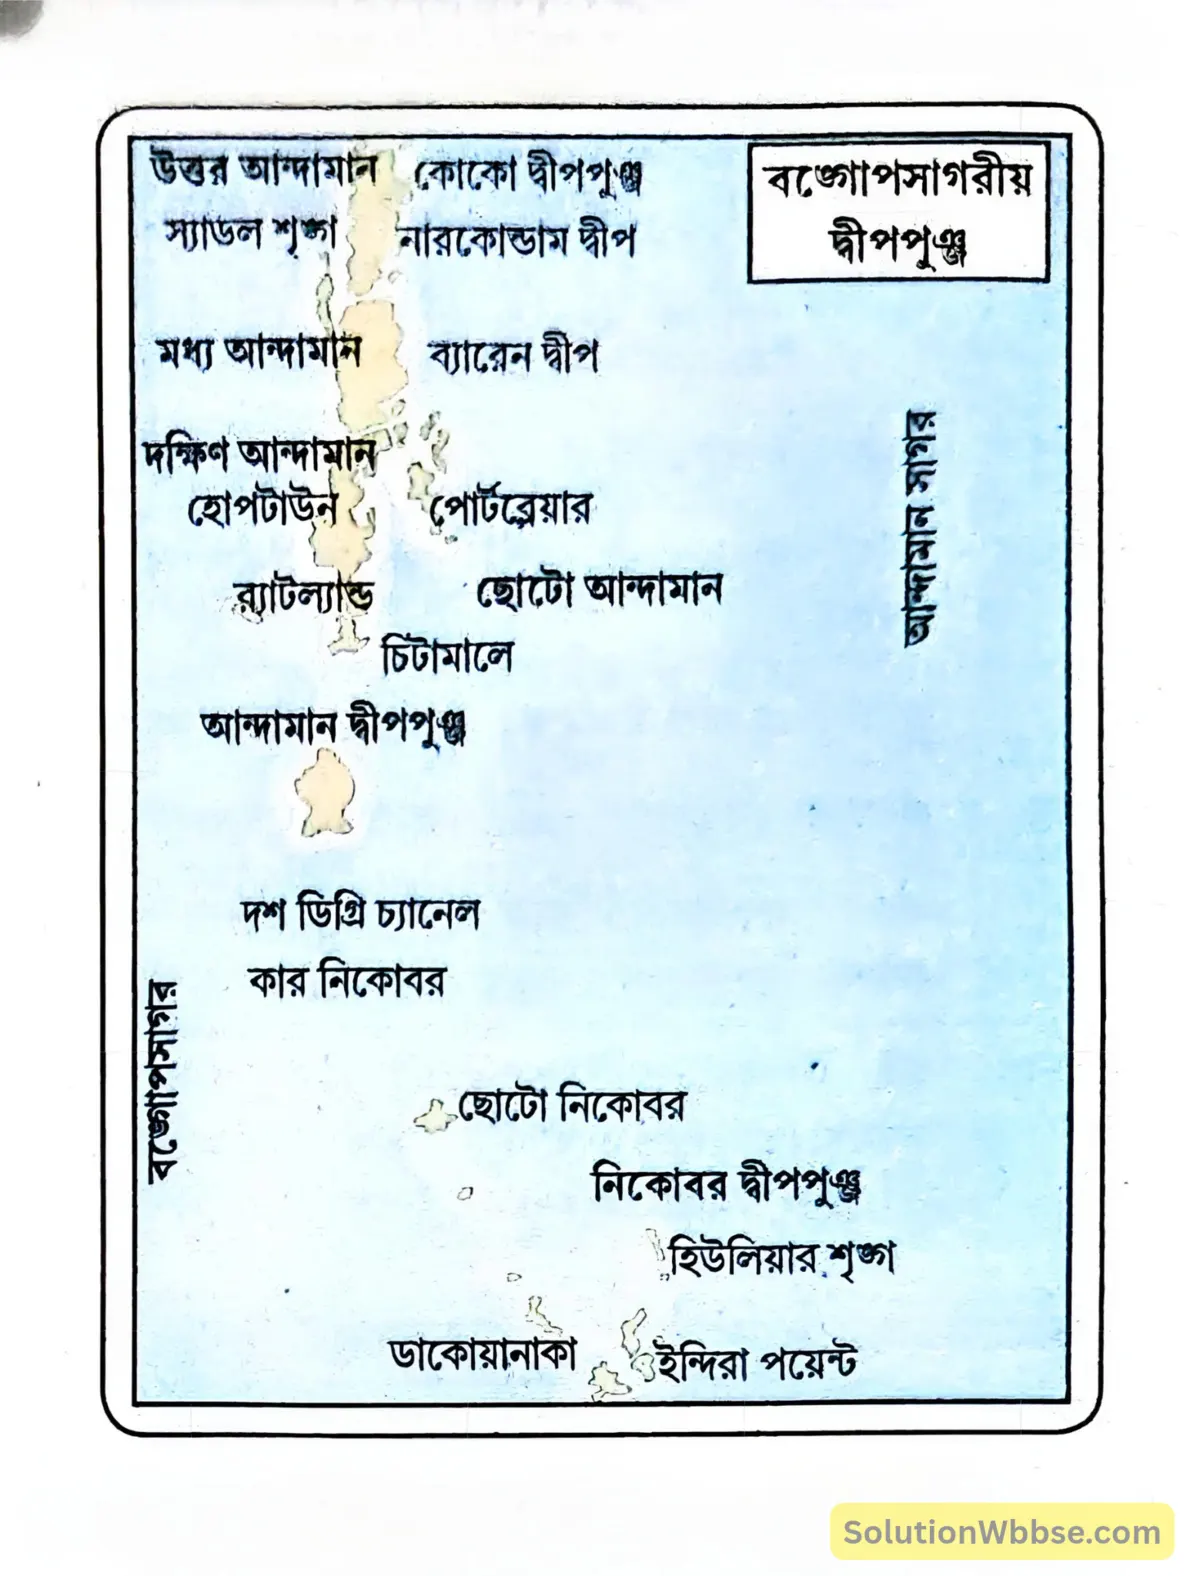 উত্তর আন্দামান
কোকো দ্বীপপুঞ্জ
বঙ্গোপসাগরীয়
দ্বীপপুঞ্জ
স্যাডল শৃঙ্গ
নারকোন্ডাম দ্বীপ
মধ্য আন্দামান
ব্যারেন দ্বীপ
আন্দামান সাগর
দক্ষিণ আন্দামান
হোপটাউন
পোর্টব্লেয়ার
র‍্যাটল্যান্ড
ছোটো আন্দামান
চিটামালে
আন্দামান দ্বীপপুঞ্জ
দশ ডিগ্রি চ্যানেল
কার নিকোবর
বঙ্গোপসাগর
ছোটো নিকোবর
নিকোবর দ্বীপপুঞ্জ
হিউলিয়ার শৃঙ্গ
ডাকোয়ানাকা
ইন্দিরা পয়েন্ট
SolutionWbbse.com